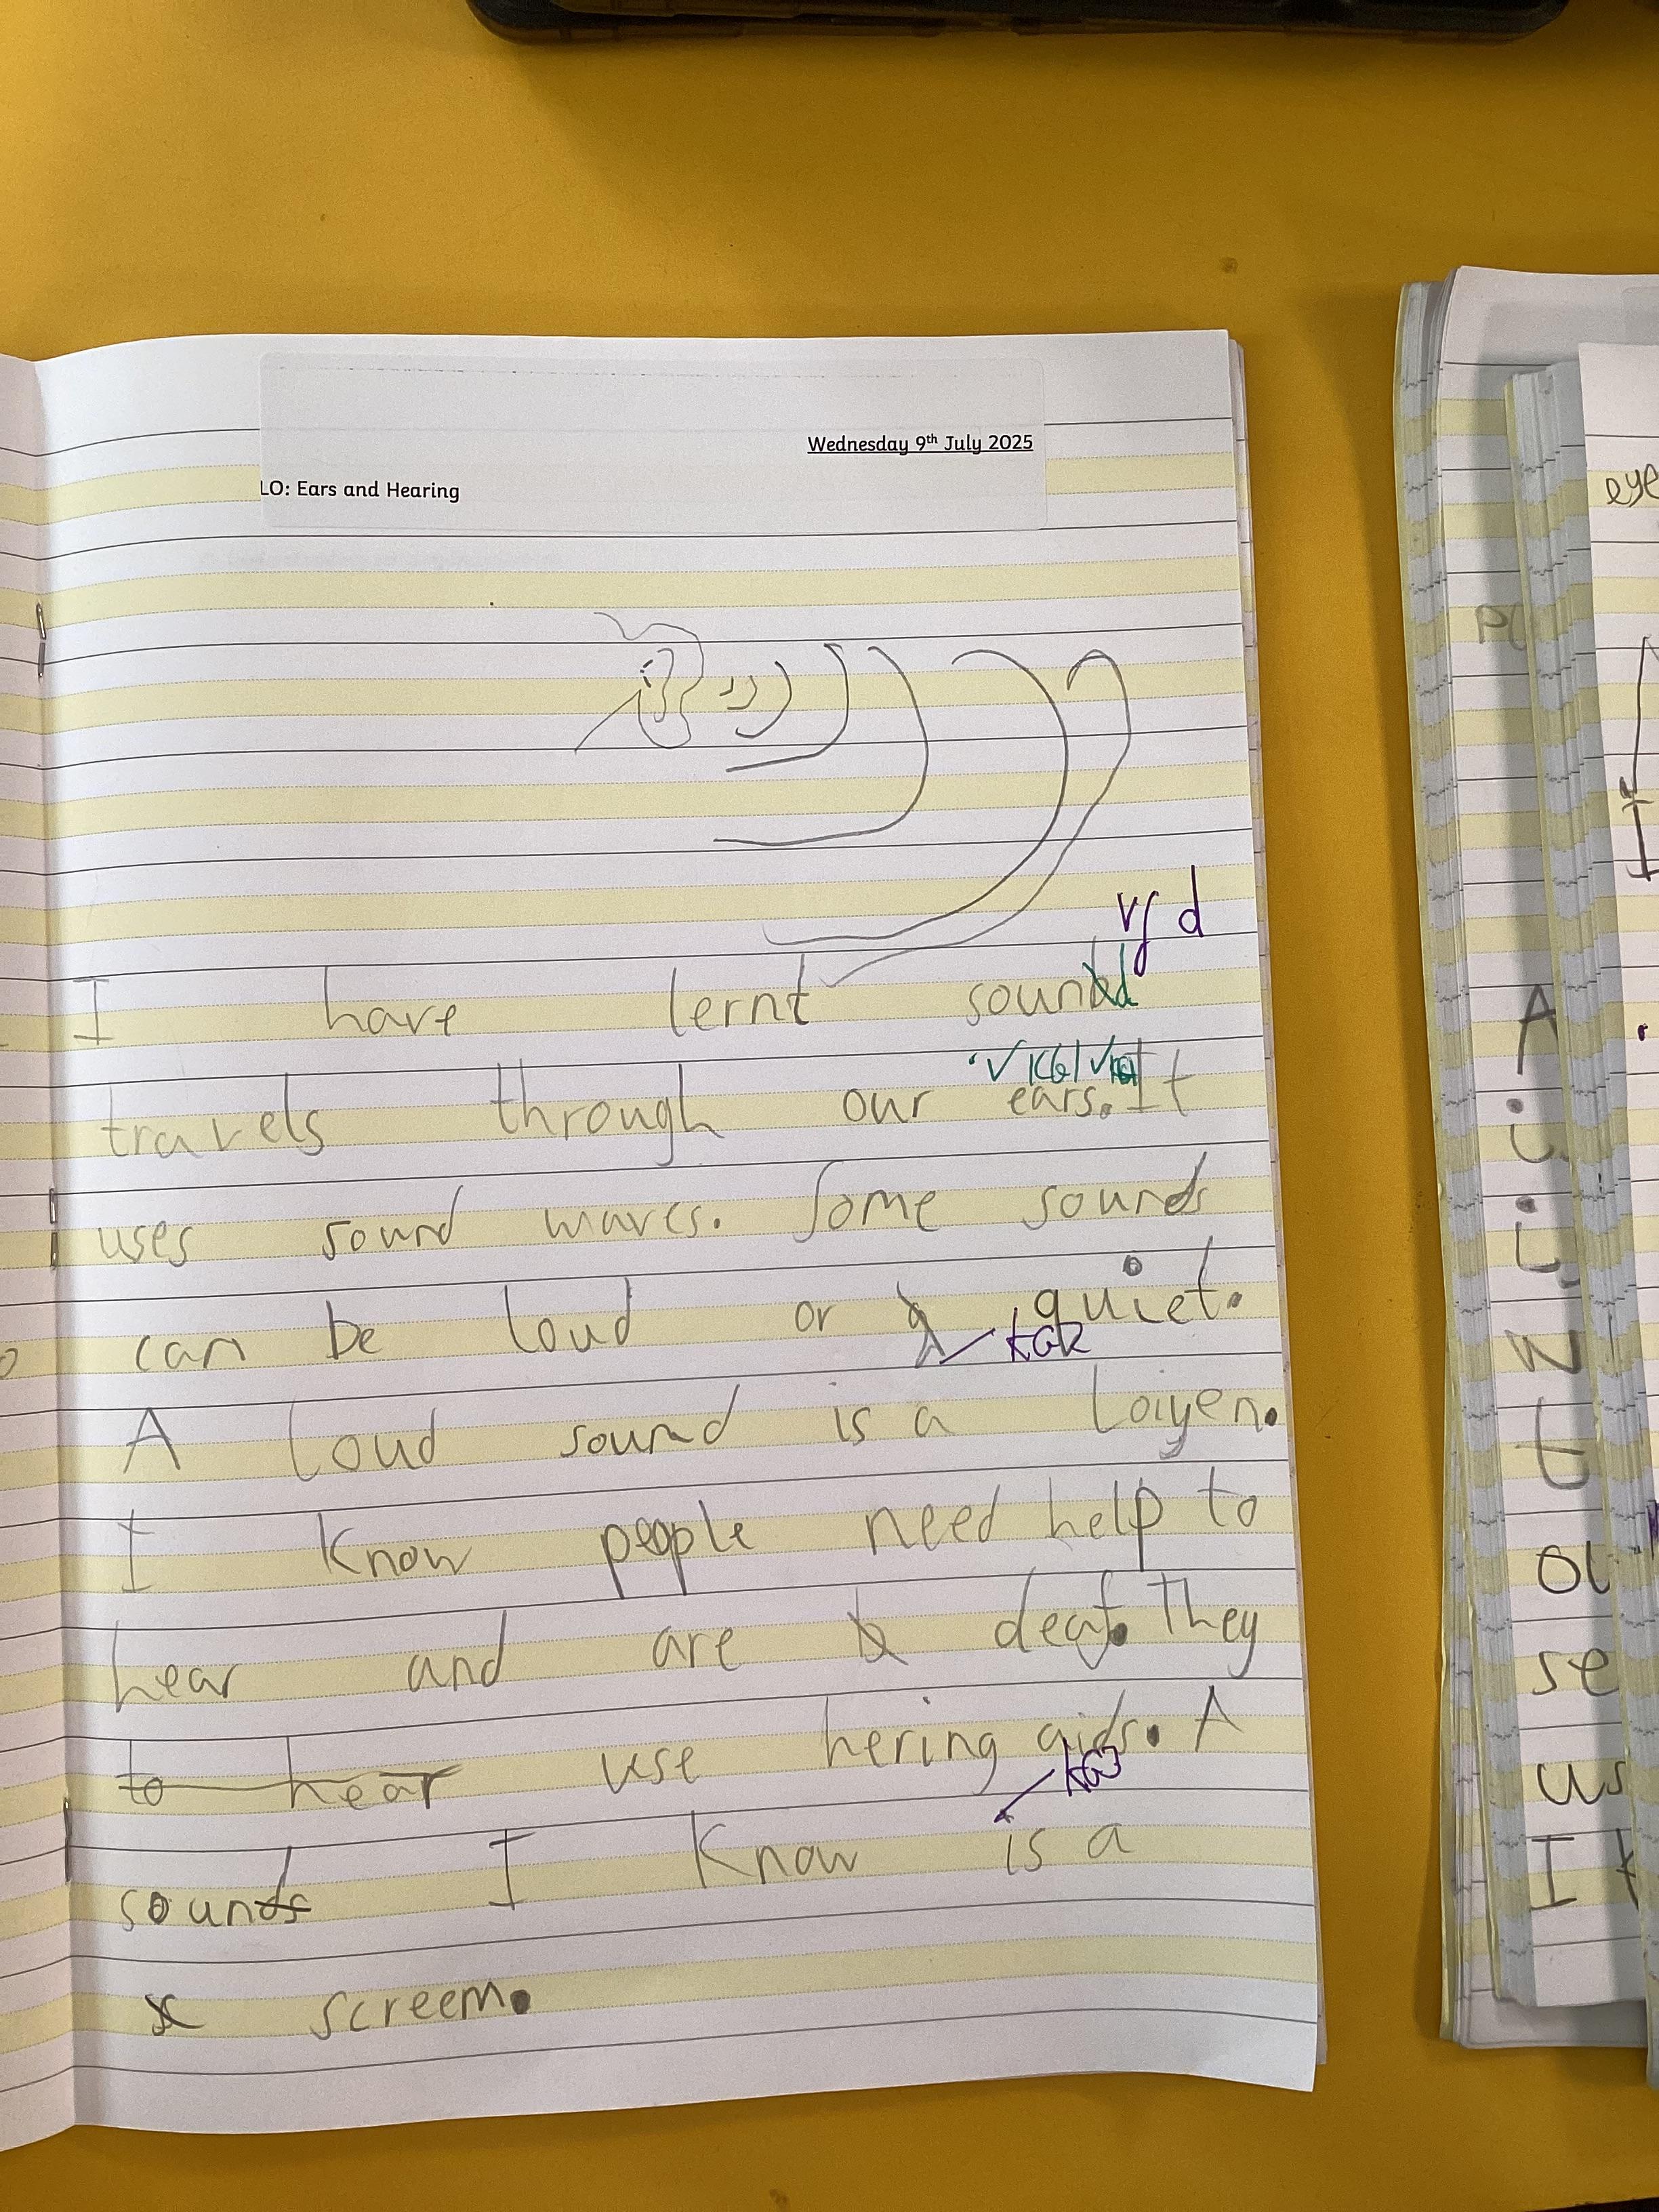 Wednesday 9th July 2025
LO: Ears and Hearing
vf d
I have lernt sound
travels through our ears. It
uses sound waves. Some sounds
can be loud or quiet.
A loud sound is a loiyen.
I know people need help to
hear and are deaf. They
to hear use hering aids. A
sounds I know is a
screem.
eye
A
ou
se
us
I